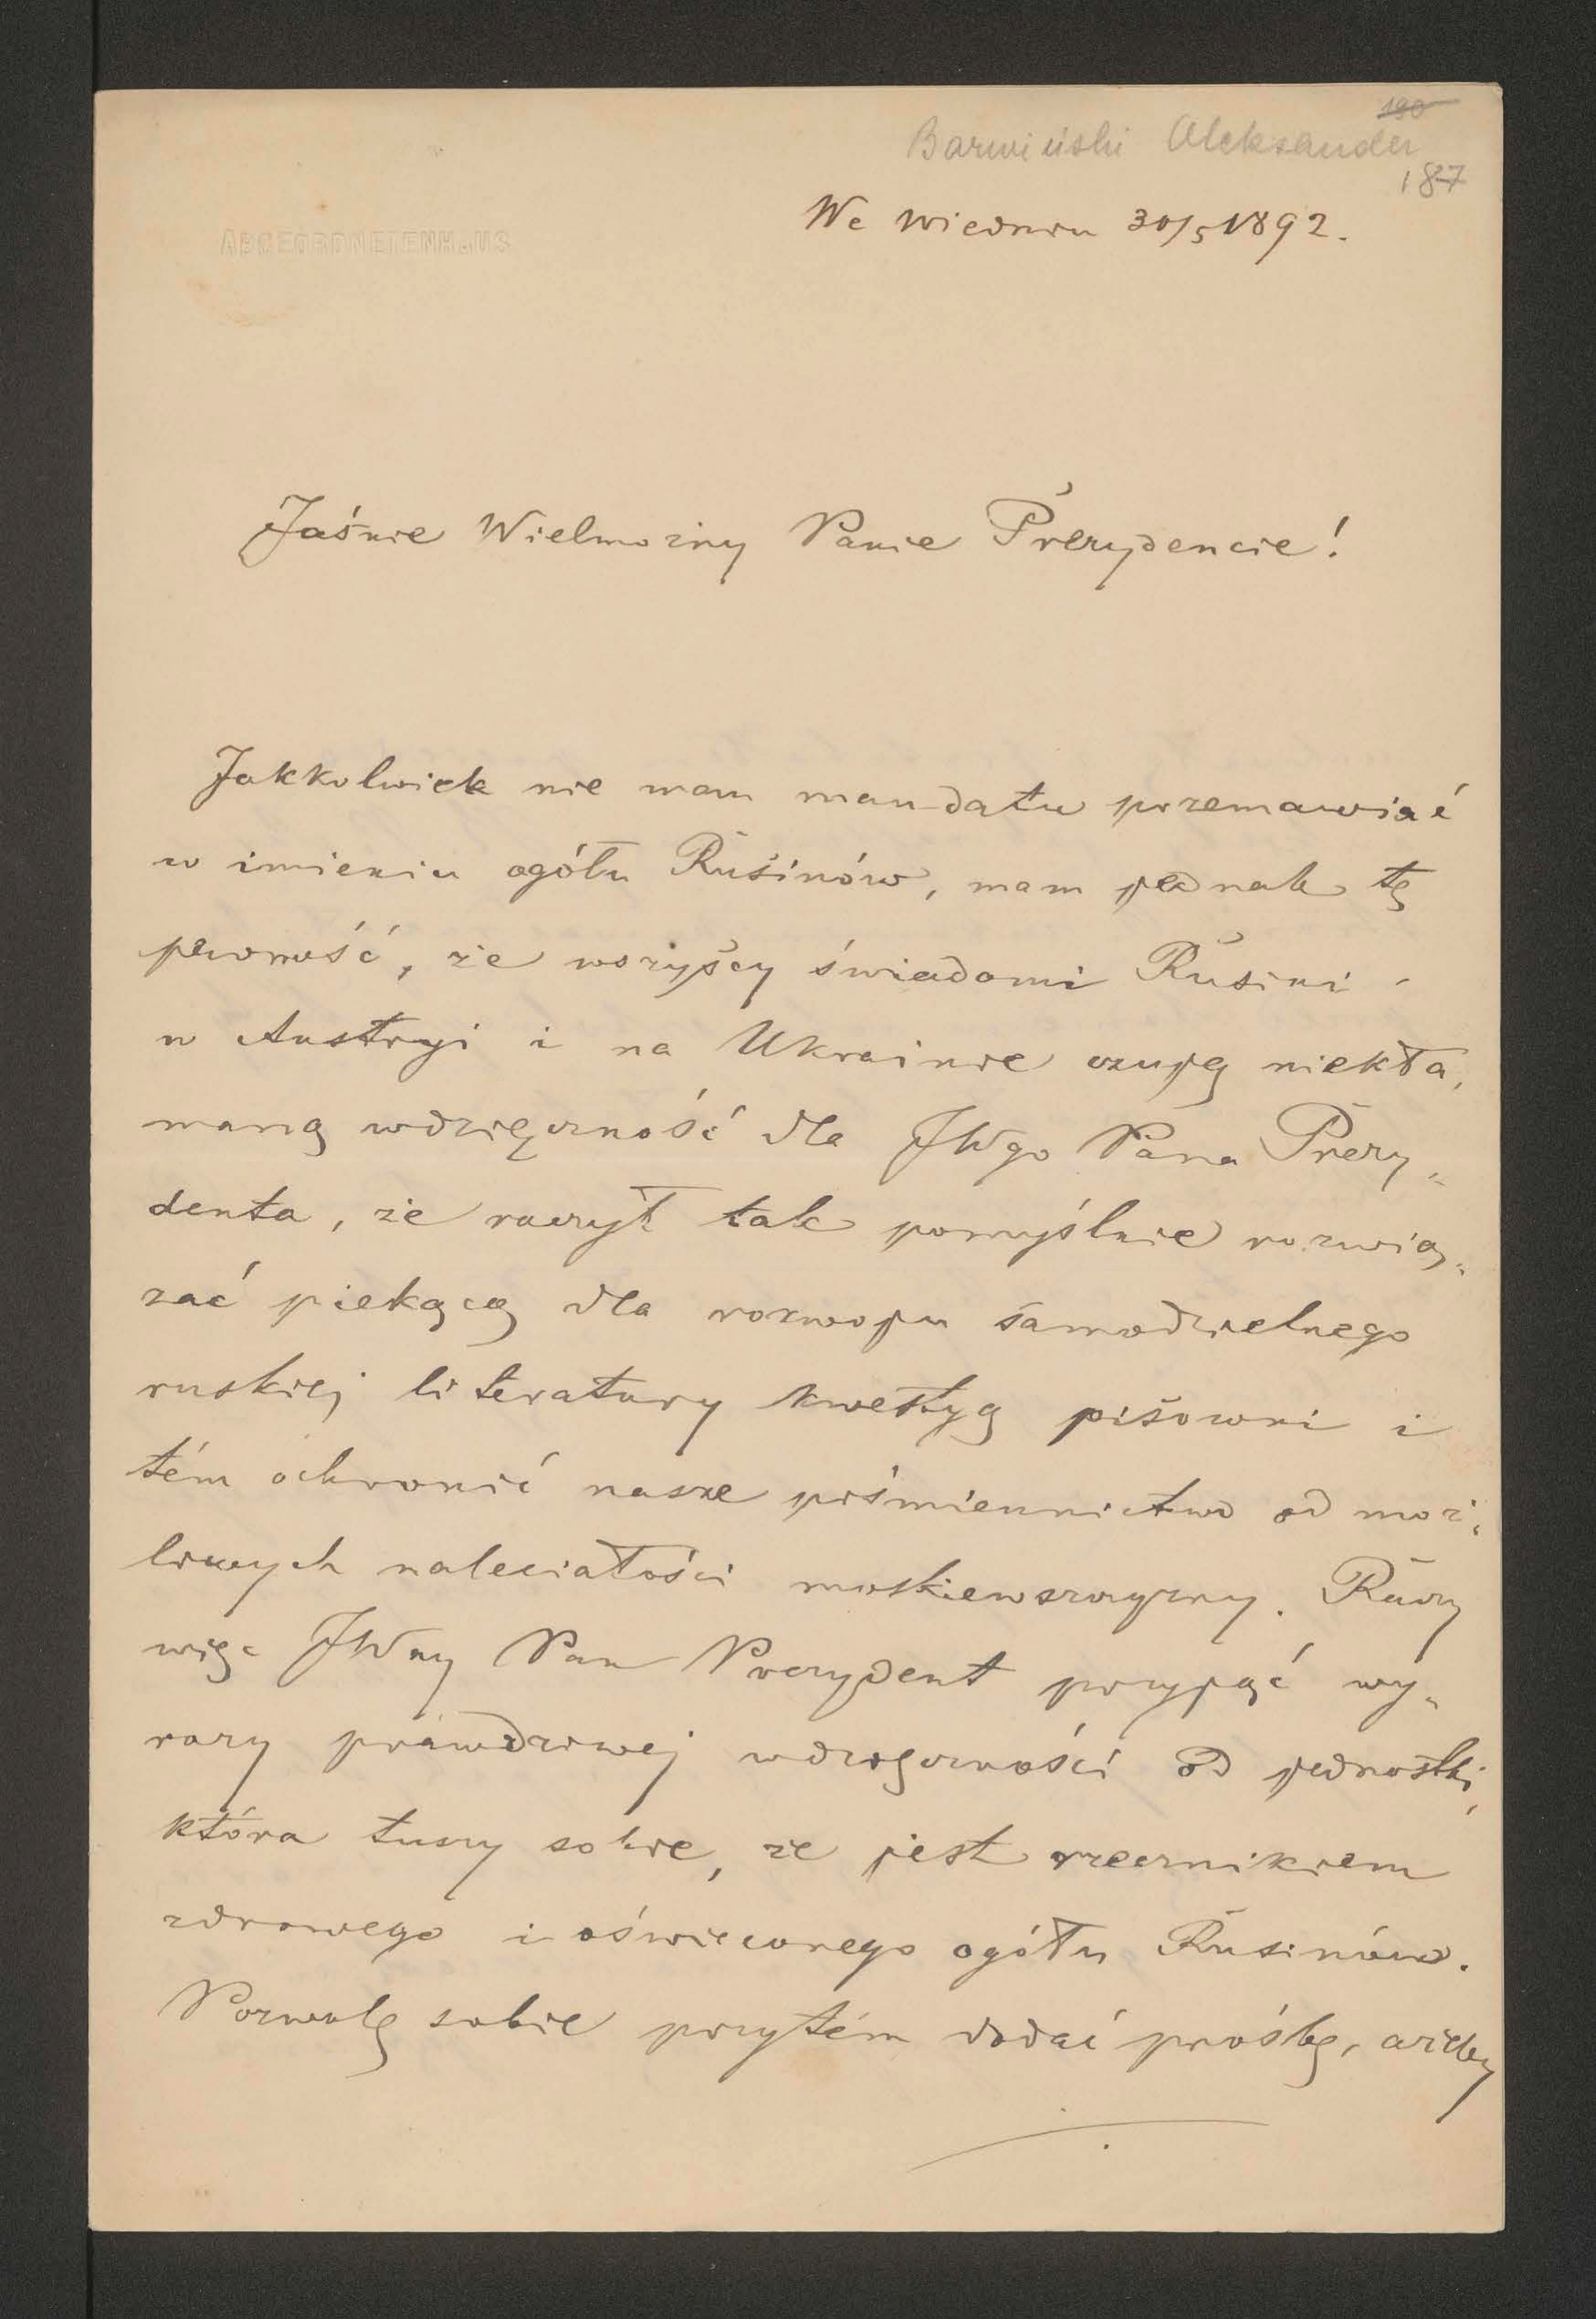 190
Barwiński Aleksander
187
We Wiedniu 30/5 1892.
ABGEORDNETENHAUS
Jaśnie Wielmożny Panie Prezydencie!
Jakkolwiek nie mam mandatu przemawiać
w imieniu ogółu Rusinów, mam jednak tę
pewność, że wszyscy świadomi Rusini
w Austryi i na Ukrainie czują niekła„
maną wdzięczność dla JWgo Pana Prezy„
denta, że raczył tak pomyślnie rozwią„
zać piekącą dla rozwoju samodzielnego
ruskiej literatury kwestyą pisowni i
tém ochronić nasze piśmiennictwo od moż„
liwych naleciałości moskiewszczyzny. Raczy
więc JWny Pan Prezydent przyjąć wy„
razy prawdziwej wdzięczności od jednostki,
która tuszy sobie, że jest rzecznikiem
zdrowego i oświeconego ogółu Rusinów.
Pozwolę sobie przytém dodać prośbę, ażeby